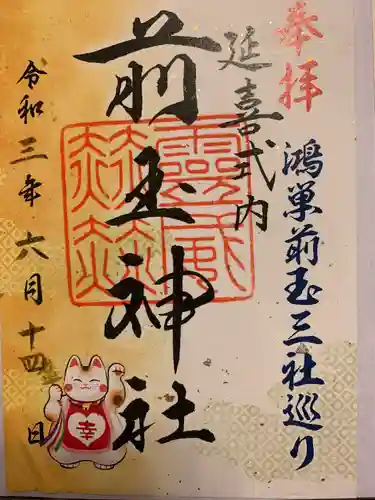 奉拝
鴻巣前玉三社巡り
延喜式内
前玉神社
令和三年六月十四日
幸